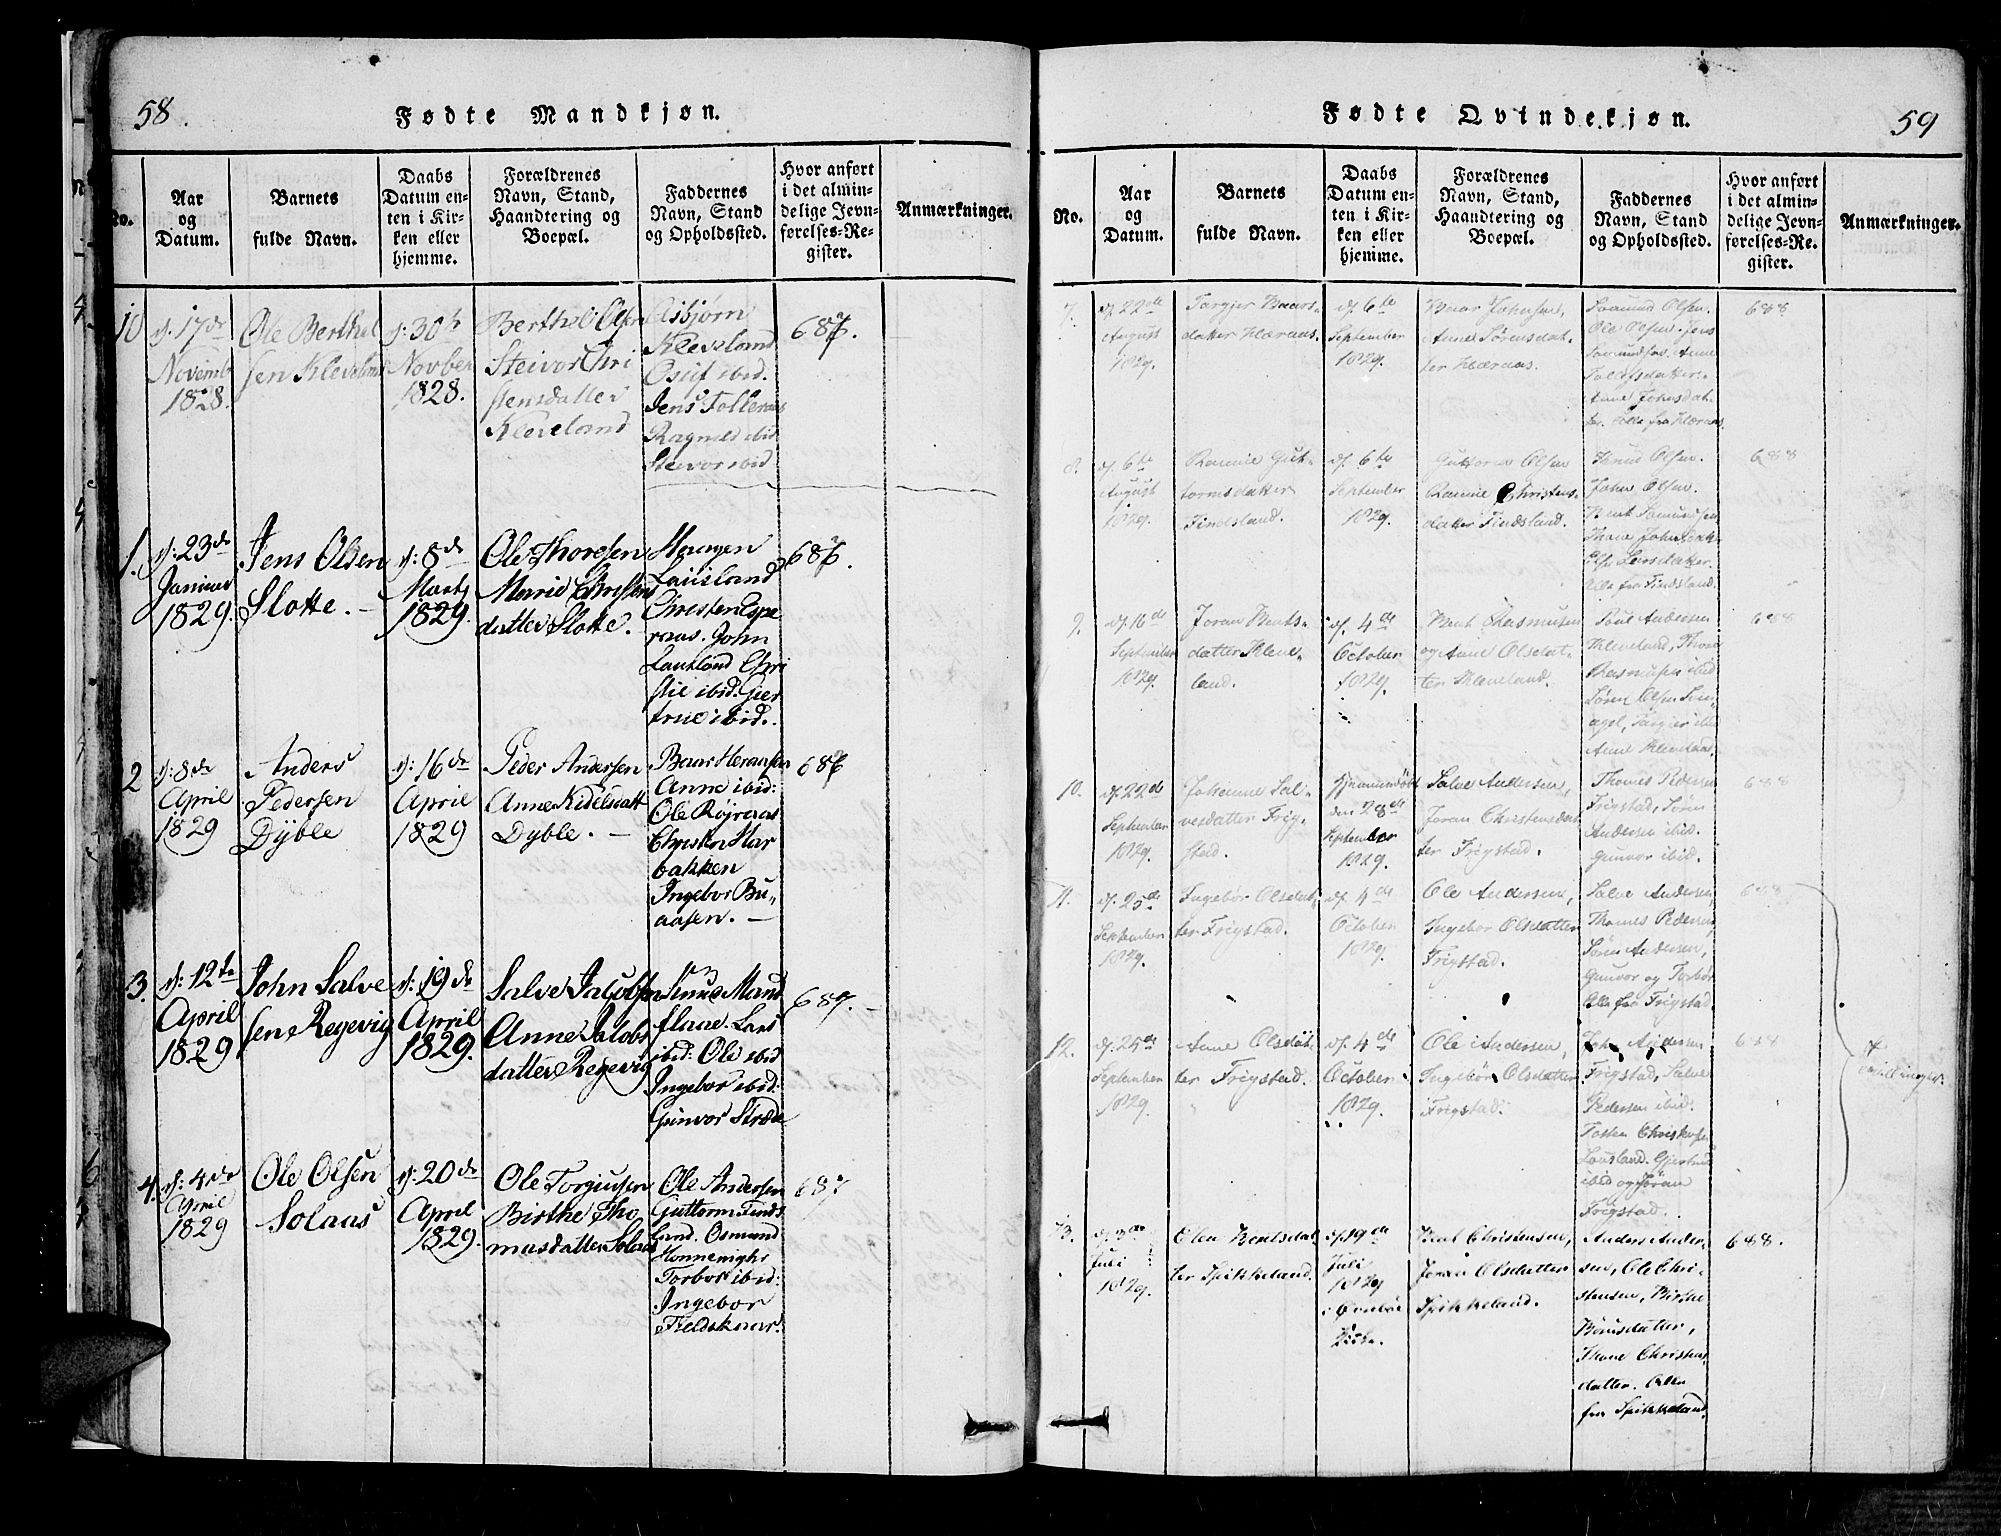 58.
Fødte Mandkjøn.
No.
Aar
og
Datum.
Barnets
fulde Navn.
Daabs
Datum en-
ten i Kir-
ken eller
hjemme.
Forældrenes
Navn, Stand,
Haandtering og
Boepæl.
Faddernes
Navn, Stand
og Opholdssted.
Hvor anført
i det almin-
delige Jevn-
førelses-Re-
gister.
Anmærkninger.
10
d: 17de
Novembr
1828.
Ole Berthel
sen Kleveland
d: 30te
Novber
1828.
Berthel Olsen
Steivor Chri
stensdatter
Kleveland
Asbjørn
Kleveland
Osuf ibid.
Jens Folleraas
Ragnild ibid
Steivor ibid
687.
1.
d: 23de
Januar
1829.
Jens Olsen
Slotte.
d: 8de
Marts
1829.
Ole Thoresen
Marie Christens
datter Slotte.
Haagen
Lauvsland
Christen Espe
raas. John
Lauvland Chri
stie ibid. Gjer
true ibid.
687.
2
d: 8de
April
1829
Anders
Pedersen
Dyble
d: 16de
April
1829
Peder Andersen
Anne Kidelsdatt
Dyble.
Baar Heraasen
Anne ibid:
Ole Røjraas
Christen Har
bakken
Ingebor Bu-
aasen.
687
3.
d: 12te
April
1829
John Salve
sen Regevig
d: 19de
April
1829.
Salve Jacobsen
Anne Jacobs
datter Regevig
Knud Mand
flaae. Lars
ibid: Ole ibid
Ingebor ibid:
Gunvor Stræde
687.
4.
d: 4de
April
1829
Ole Olsen
Solaas
d: 20de
April
1829.
Ole Torgiusen
Birthe Tho
masdatter Solaas
Ole Andersen
Guttorm Finds
land. Osmund
Honnemighr
Torbor ibid:
Ingebor
Fieldskaar.
687
Fødte Qvindekjøn.
59
No.
Aar
og
Datum.
Barnets
fulde Navn.
Daabs
Datum en-
ten i Kir-
ken eller
hjemme.
Forældrenes
Navn, Stand,
Haandtering og
Boepæl.
Faddernes
Navn, Stand
og Opholdssted.
Hvor anført
i det almin-
delige Jevn-
førelses-Re-
gister.
Anmærkninger.
7.
d. 22de
August
1829.
Torgjer Baars-
datter Hæraas.
d. 6te
September
1829.
Baar Johnsen,
Anne Sørensdat-
ter Hæraas.
Aamund Olsen.
Ole Olsen. Jens
Aamundsen. Anne
datter.
Anne Johnsdat-
ter. Alle fra Hæraas.
688
8.
d. 6te
August
1829.
Ramie Gut-
tormsdatter
Findsland.
d. 6te
September
1829.
Guttorm Olsen
Ramie Christens-
datter Findsland.
Knud Olsen.
John Olsen.
Bent Aamundsen
Thore Johnsdat-
Else Larsdatter.
Alle fra Findsland.
688
9.
d. 16de
September
1829.
Joran Bents-
datter Kleve-
land.
d. 4de
October
1829.
Bent Rasmusen
og Anne Olsdat-
ter Kleveland.
Poul Andersen
Kleveland, Thore
Rasmusen ibid
Søren Olsen
Torgjer ibid
Anne Kleveland.
688
10.
d. 22de
September
1829.
Johanne Sal-
vesdatter Frig-
stad.
Hjemmedøbt
den 28de
September
1829.
Salve Andersen,
Joran Christensdat-
ter Frigstad.
Thomes Pedersen
Frigstad, Søren
Andersen ibid.
Gunvor ibid.
688
11.
d. 25de
September
1829.
Ingebor Olsdat-
ter Frigstad.
d. 4de
October
1829.
Ole Andersen,
Ingebor Olsdatter
Frigstad.
Salve Andersen,
Thomes Pedersen,
Søren Andersen,
Gunvor og Torbor
Alle fra Frigstad.
688
12.
d. 25de
September
1829.
Anne Olsdat-
ter Frigstad.
d. 4de
October
1829.
Ole Andersen,
Ingebor Olsdatter
Frigstad.
John Andersen
Frigstad, Salve
Pedersen ibid.
Tosten Christensen
Lousland. Gjertrud
ibid og Joran
Frigstad.
688
Tvillinger.
13.
d. 3de
Juli
1829.
Elen Bentsdat-
ter Spikkeland.
d. 19de
Juli
1829
i Øvrebøe
Kirke.
Bent Christensen,
Joran Olsdatter
Spikkeland.
Anders Ander-
sen, Ole Chri-
stensen, Birthe
Børusdatter,
Thore Christens-
datter. Alle
fra Spikkeland.
688.